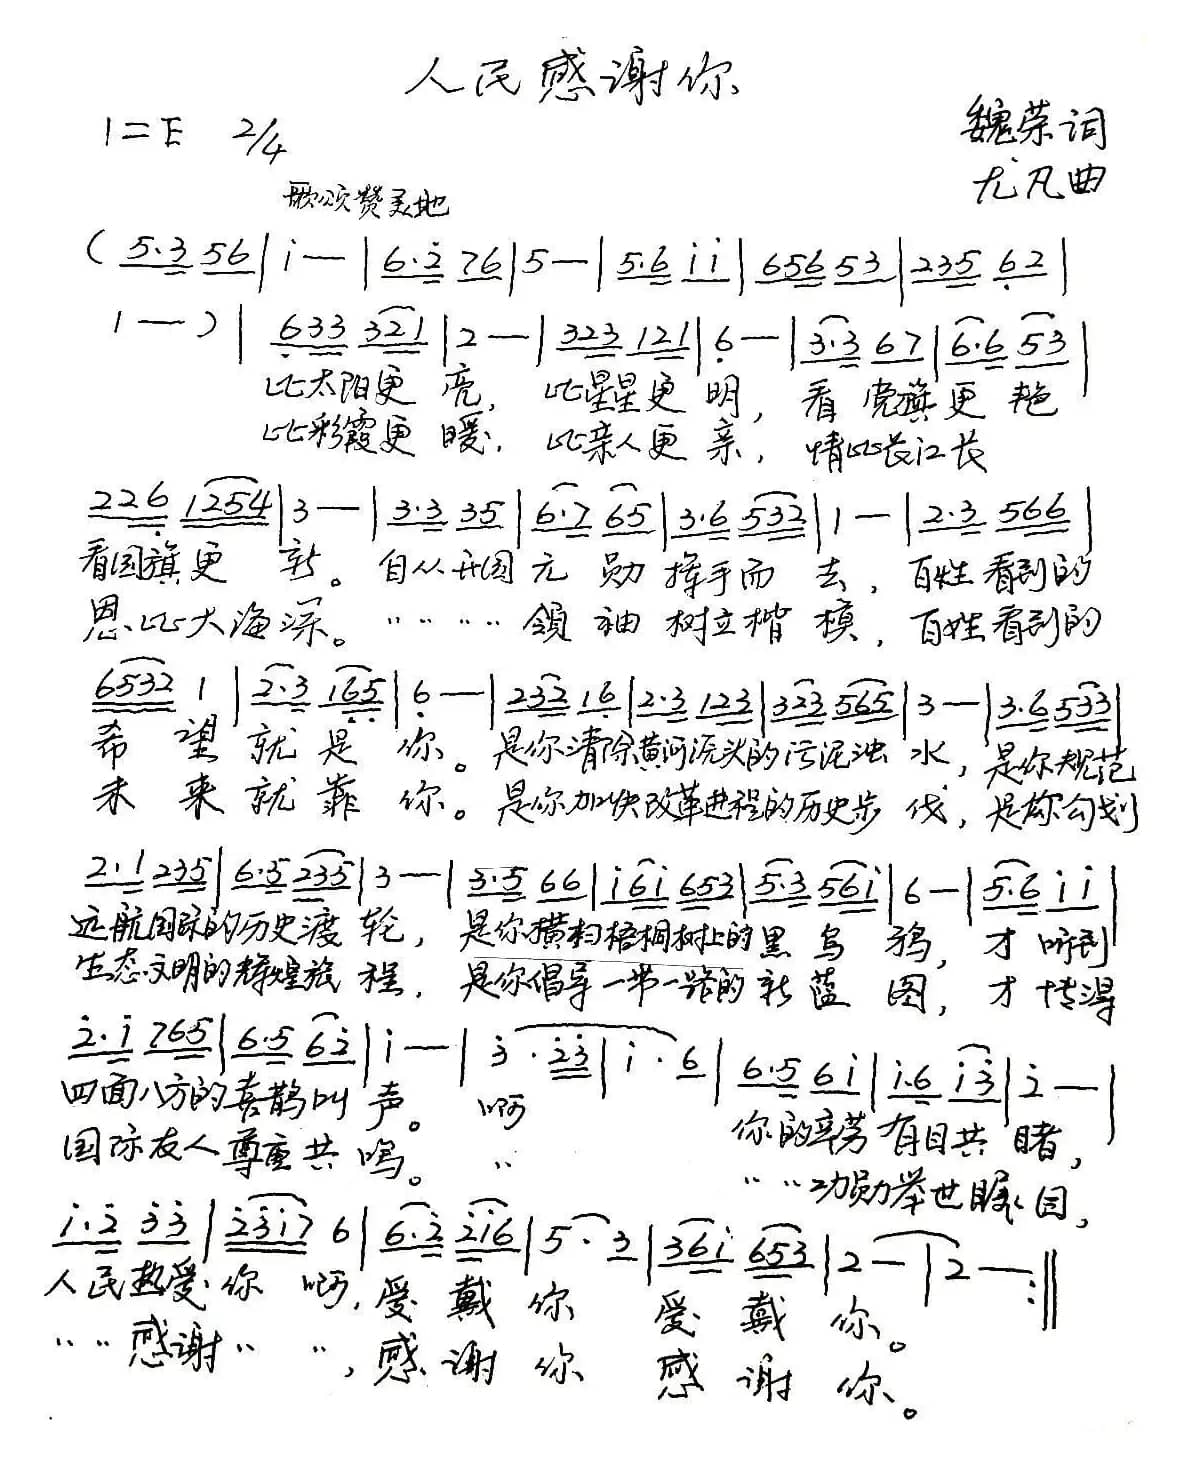 人民感谢你
1=E 2/4
魏荣词
尤凡曲
歌颂赞美地
( 5·3 56 | i — | 6·2 76 | 5 — | 5·6 i i | 656 53 | 235 62 |
1 — ) | 633 321 | 2 — | 323 121 | 6 — | 3·3 67 | 6·6 53 |
比太阳更亮, 比星星更明, 看党旗更艳
比彩霞更暖, 比亲人更亲, 情比长江长
226 1254 | 3 — | 3·3 35 | 6·7 65 | 3·6 532 | 1 — | 2·3 566 |
看国旗更新。自从开国元勋挥手而去, 百姓看到的
恩比大海深。〃〃〃〃领袖树立楷模, 百姓看到的
6532 1 | 2·3 165 | 6 — | 232 16 | 2·3 123 | 323 565 | 3 — | 3·6 533 |
希望就是你。是你清除黄河流头的污泥浊水, 是你规范
未来就靠你。是你加快改革进程的历史步伐, 是你勾划
2·1 235 | 6·5 235 | 3 — | 3·5 66 | i 6 i 653 | 5·3 56i | 6 — | 5·6 i i |
远航国际的历史渡轮, 是你横扫梧桐树上的黑乌鸦, 才听到
生态文明的辉煌旅程, 是你倡导一带一路的新蓝图, 才博得
2·i 765 | 6·5 62 | i — | 3·23 | i·6 | 6·5 6i | i·6 i3 | 2 — |
四面八方的喜鹊叫声。啊 你的辛劳有目共睹,
国际友人尊重共鸣。〃 〃〃功勋举世瞩目,
i·2 33 | 23i7 6 | 6·2 2i6 | 5·3 | 36i 653 | 2 — | 2 — :||
人民热爱你啊, 爱戴你 爱戴你。
〃〃感谢〃〃, 感谢你 感谢你。